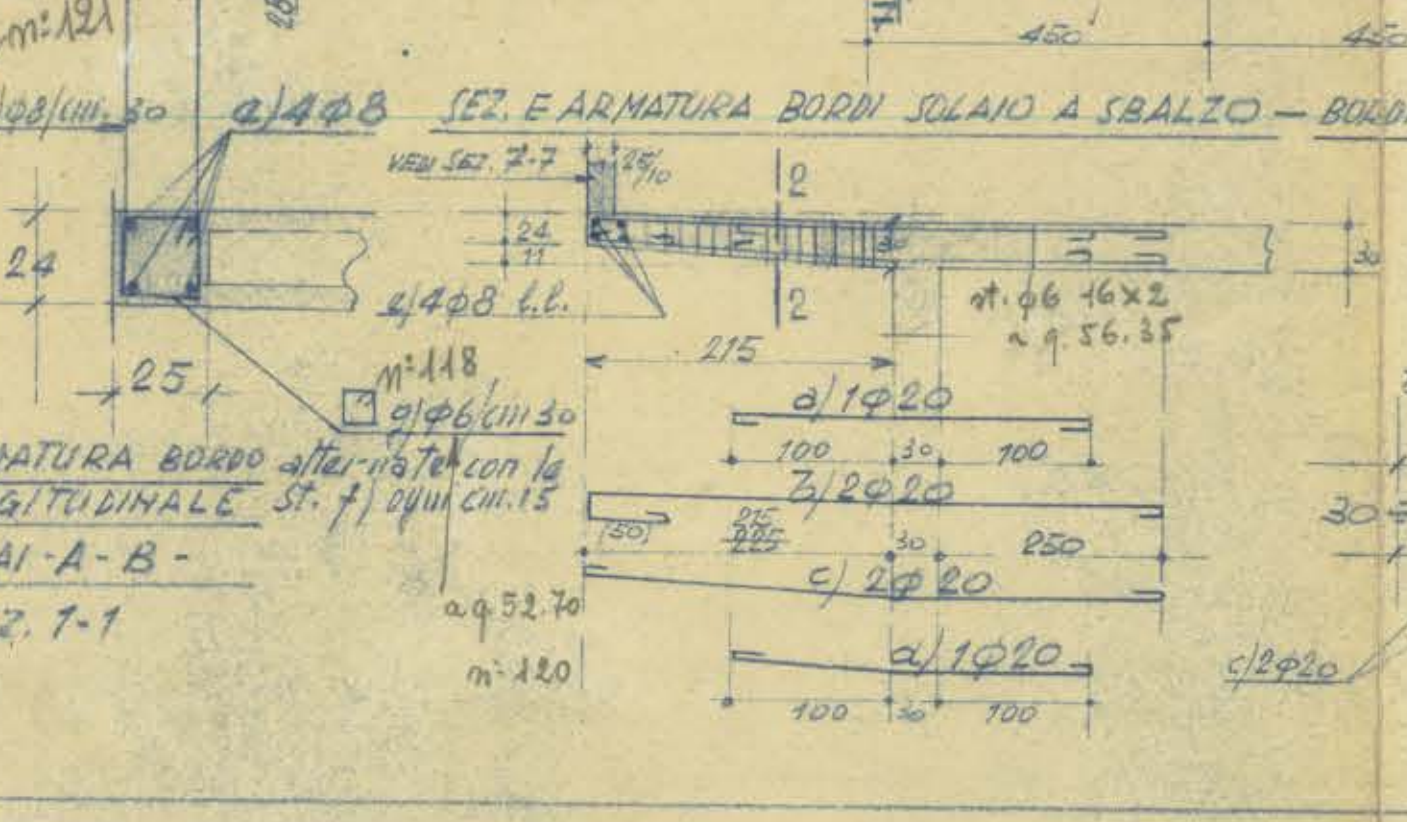 n° 121
450
450
φ8/cm. 30
e) 4φ8
SEZ. E ARMATURA BORDI SOLAIO A SBALZO — BORDI
VEDI SEZ. 7-7
25/10
2
24
24
11
30
e) 4φ8 l.l.
2
st. φ6 16x2
a q. 56.35
215
25
n° 118
g) φ6/cm 30
a) 1φ20
100 30 100
ATURA BORDO
GITUDINALE
alternate con le
st. f) ogni cm. 15
b) 2φ20
50
215
225
30
250
30
AI - A - B -
c) 2φ20
Z. 1-1
a q 52.70
n° 120
d) 1φ20
c) 2φ20
100 30 100